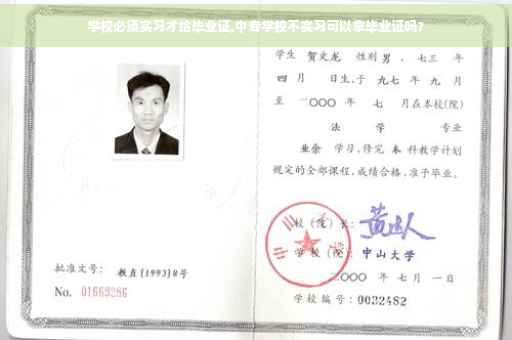 学校必须实习才给毕业证,中专学校不实习可以拿毕业证吗?
学生 贺文龙 性别男，七三 年
四 月 日生,于 九七 年 九 月
至 二〇〇〇 年 七 月在本校(院)
法 学 专业
业余 学习,修完 本 科教学计划
规定的全部课程,成绩合格,准予毕业。
校（院）长:
学 校（院): 中山大学
二〇〇〇 年 七 月 一 日
批准文号: 教直[1993]8号
No. 01663286
学校编号: 0032482